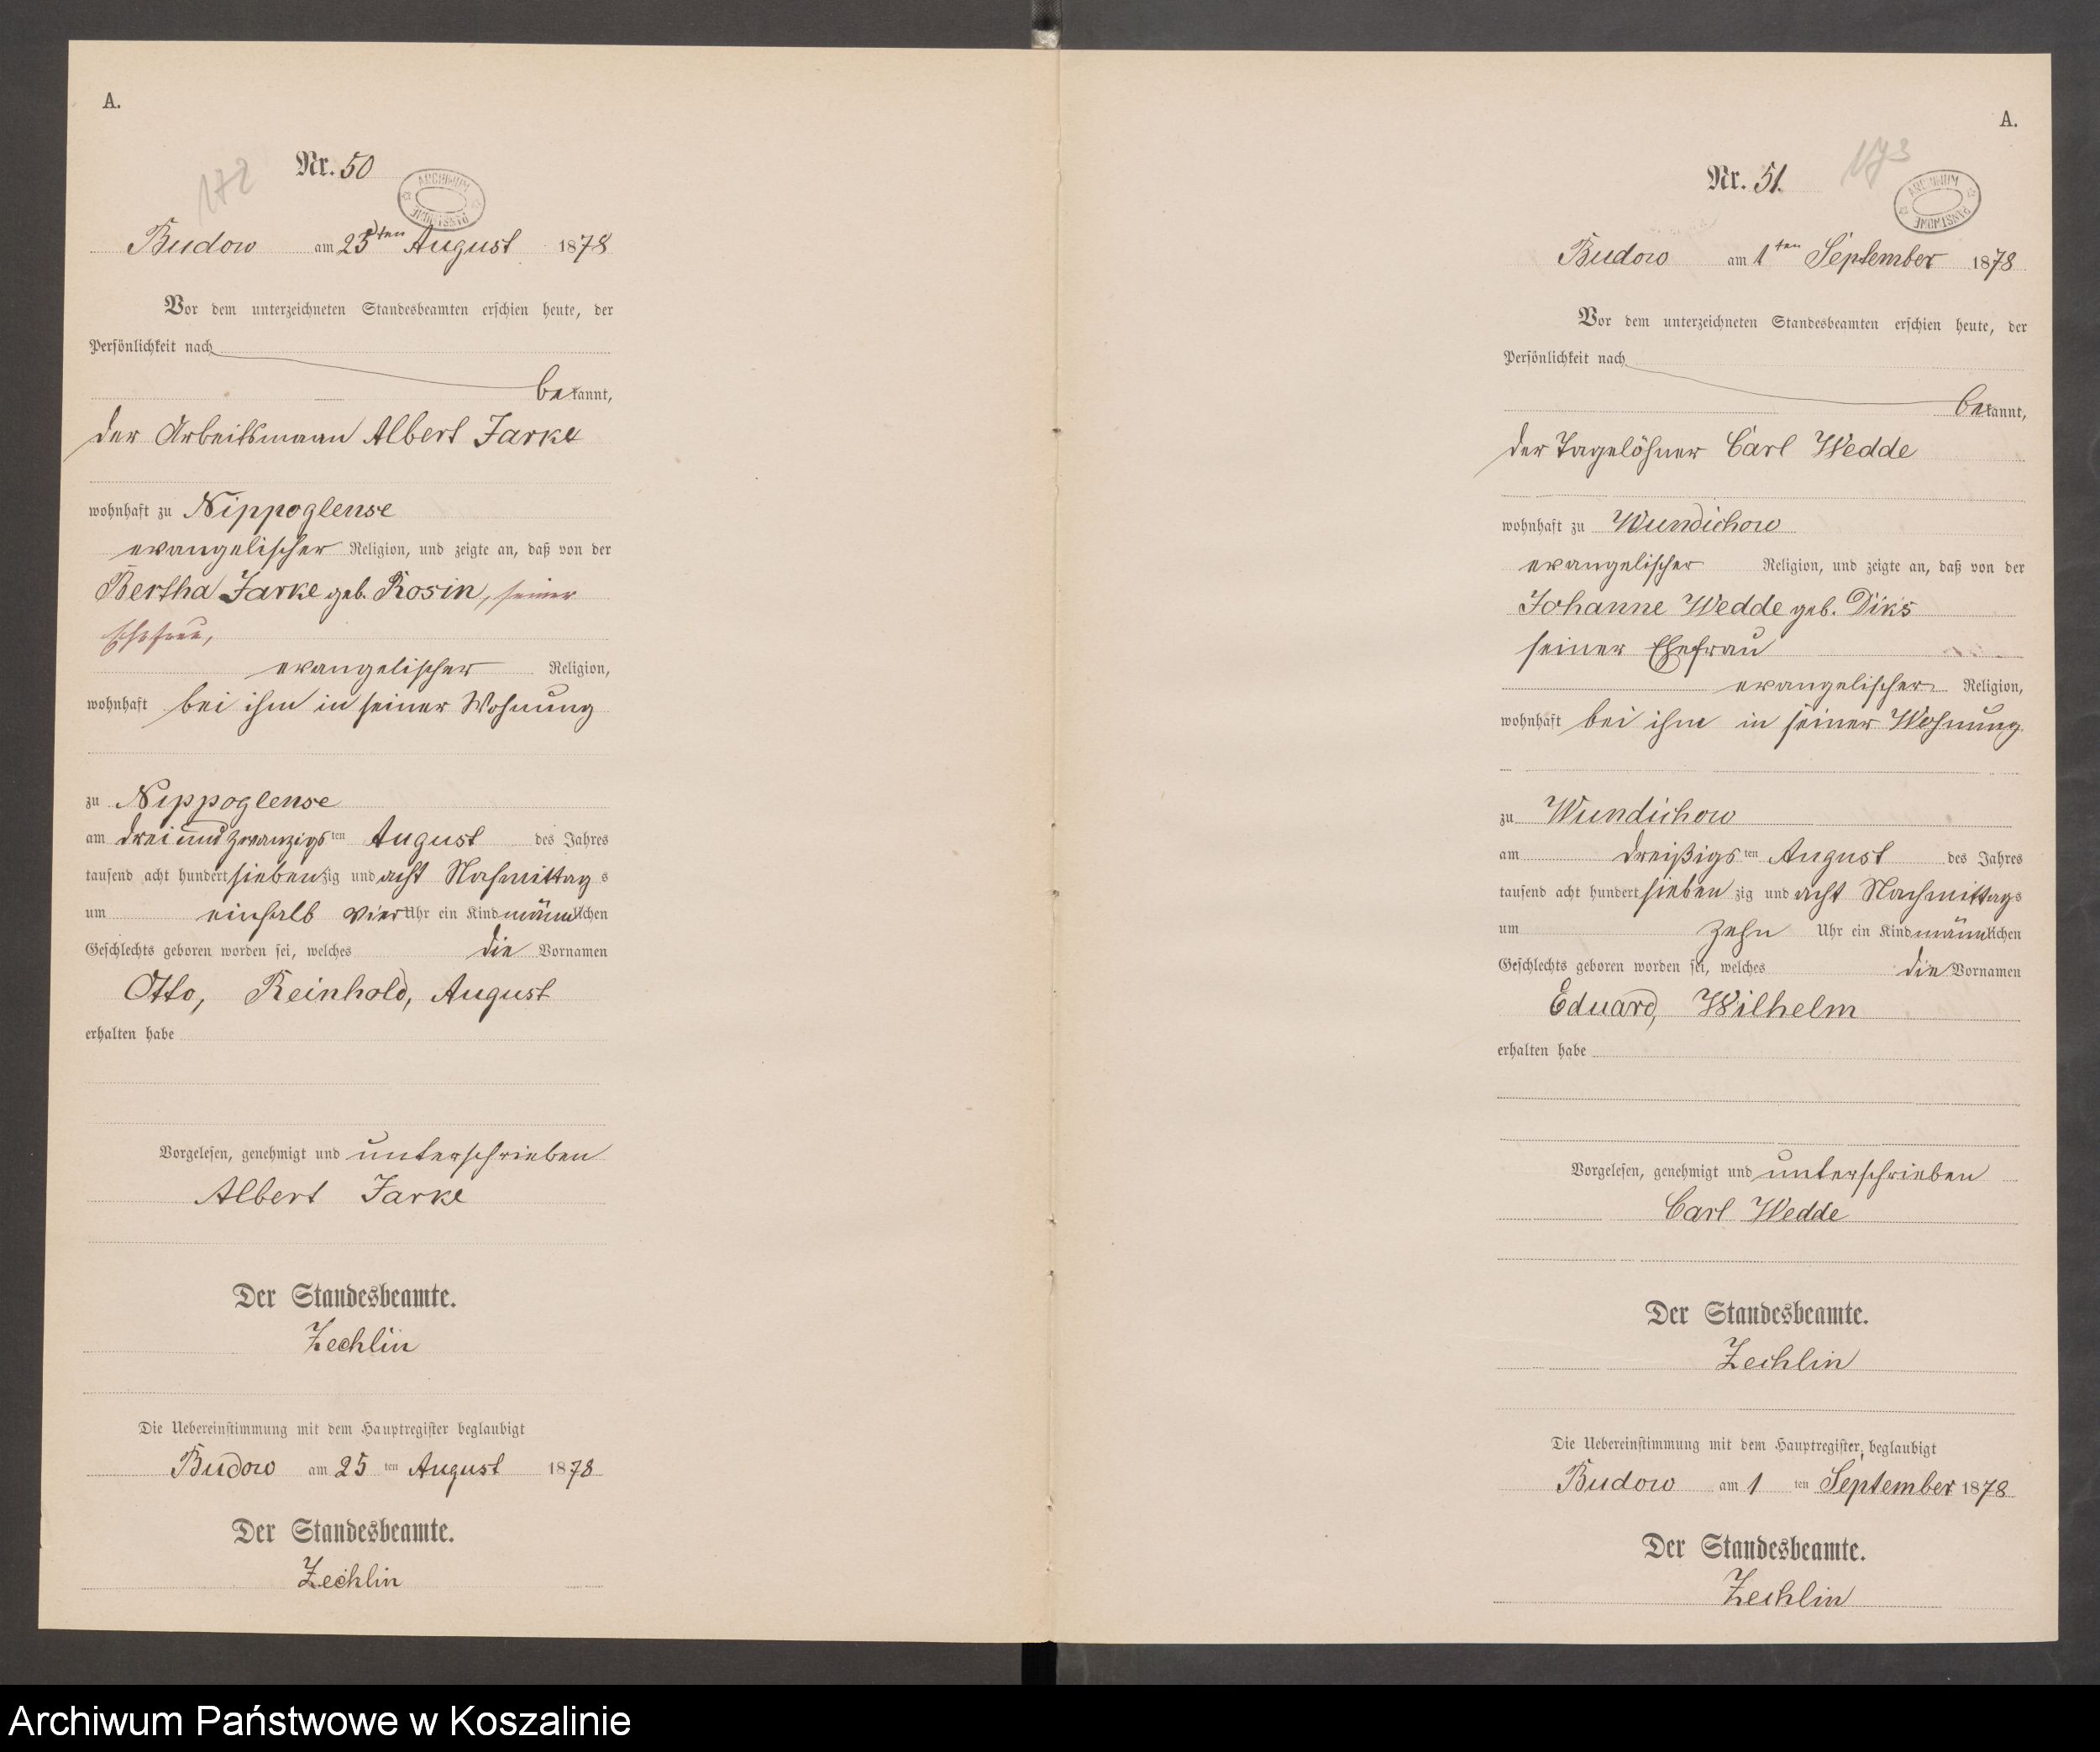 A.
172
Nr. 50
ARCHIWUM PAŃSTWOWE
Budow am 25ten August 1878
Vor dem unterzeichneten Standesbeamten erschien heute, der
Persönlichkeit nach
bekannt,
der Arbeitsmann Albert Jarke
wohnhaft zu Nippoglense
evangelischer Religion, und zeigte an, daß von der
Bertha Jarke geb. Rosin, seiner
Ehefrau,
evangelischer Religion,
wohnhaft bei ihm in seiner Wohnung
zu Nippoglense
am drei und zwanzigsten August des Jahres
tausend acht hundert siebenzig und acht Nachmittags
um einhalb vier Uhr ein Kind männlichen
Geschlechts geboren worden sei, welches die Vornamen
Otto, Reinhold, August
erhalten habe
Vorgelesen, genehmigt und unterschrieben
Albert Jarke
Der Standesbeamte.
Zechlin
Die Uebereinstimmung mit dem Hauptregister beglaubigt
Budow am 25 ten August 1878
Der Standesbeamte.
Zechlin
A.
173
Nr. 51.
ARCHIWUM PAŃSTWOWE
Budow am 1ten September 1878
Vor dem unterzeichneten Standesbeamten erschien heute, der
Persönlichkeit nach
bekannt,
der Tagelöhner Carl Wedde
wohnhaft zu Wundichow
evangelischer Religion, und zeigte an, daß von der
Johanne Wedde geb. Diks
seiner Ehefrau
evangelischer Religion,
wohnhaft bei ihm in seiner Wohnung
zu Wundichow
am dreißigsten August des Jahres
tausend acht hundert siebenzig und acht Nachmittags
um zehn Uhr ein Kind männlichen
Geschlechts geboren worden sei, welches die Vornamen
Eduard, Wilhelm
erhalten habe
Vorgelesen, genehmigt und unterschrieben
Carl Wedde
Der Standesbeamte.
Zechlin
Die Uebereinstimmung mit dem Hauptregister beglaubigt
Budow am 1 ten September 1878
Der Standesbeamte.
Zechlin
Archiwum Państwowe w Koszalinie